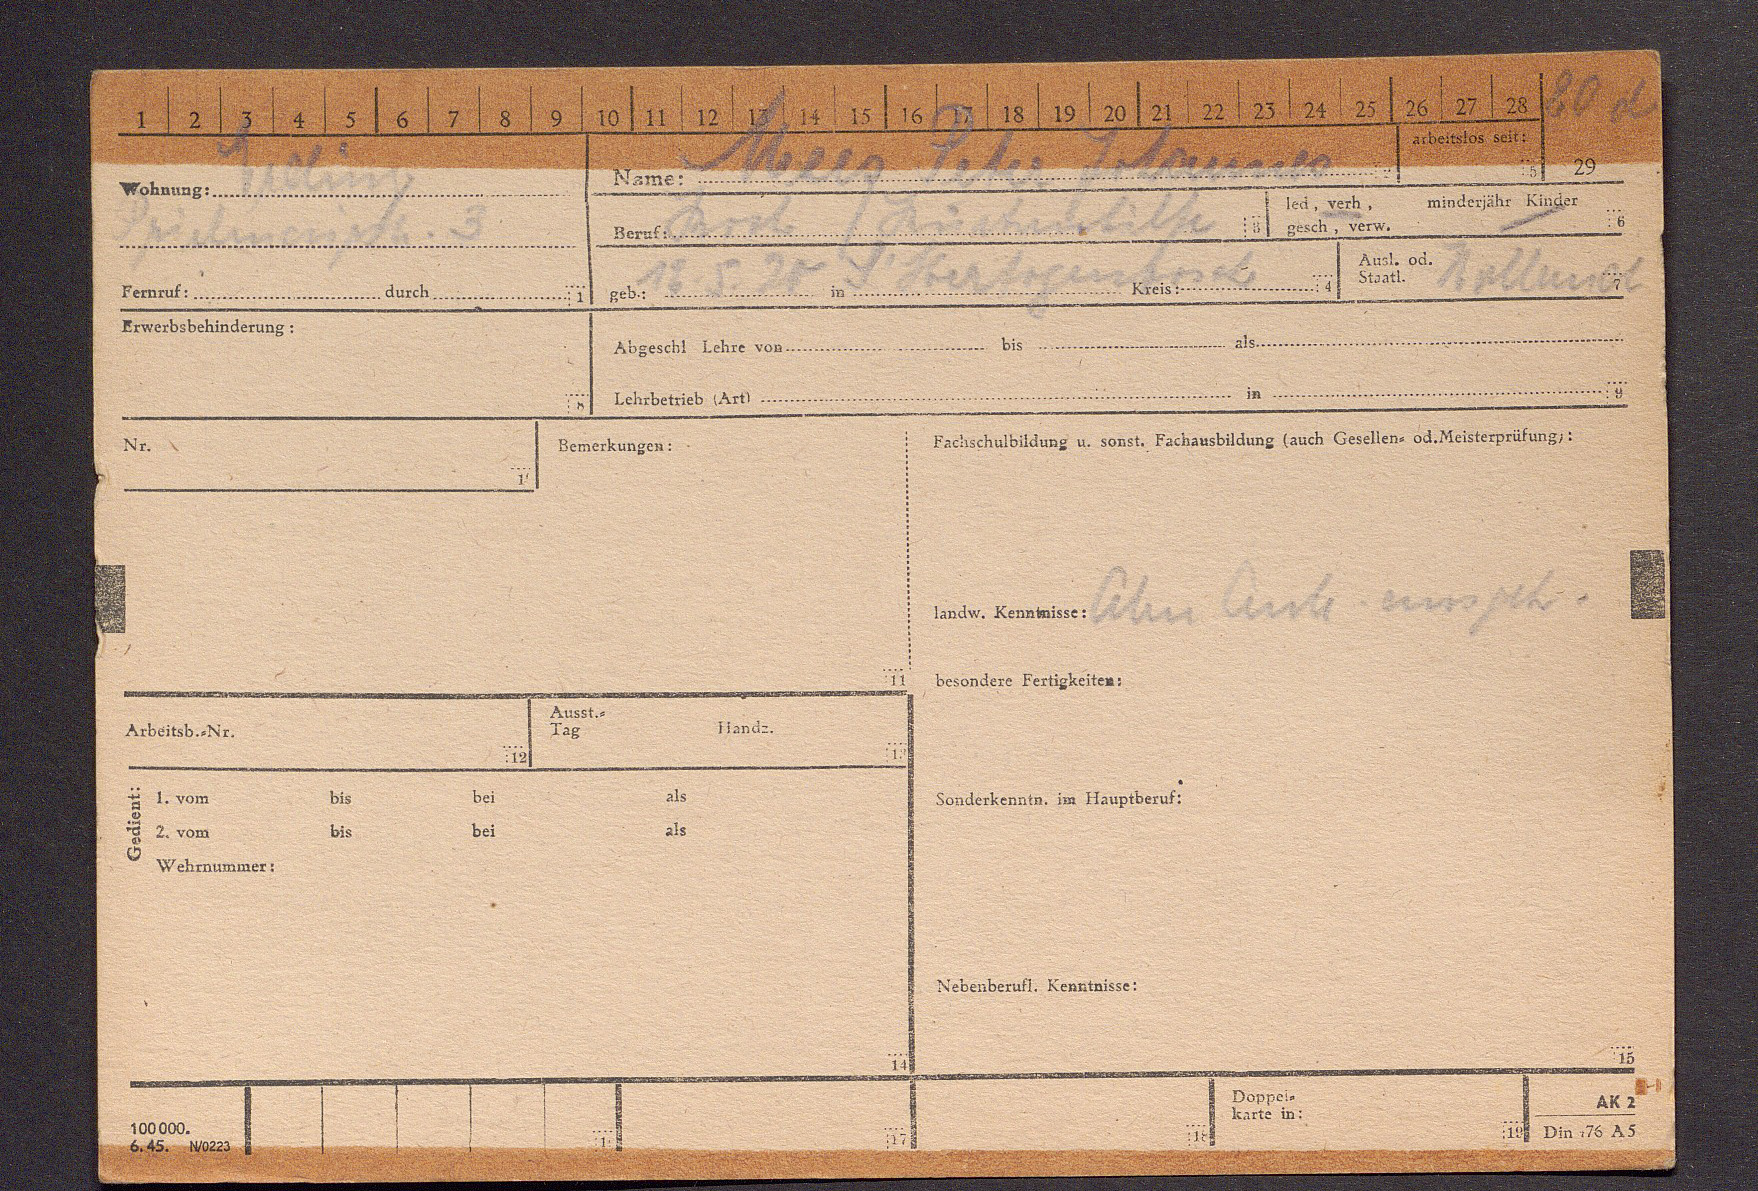 1 2 3 4 5 6 7 8 9 10 11 12 13 14 15 16 17 18 19 20 21 22 23 24 25 26 27 28 20 d
arbeitslos seit: 5 29
Wohnung:
3
Fernruf: durch 1
Name: Peter Johannes
Beruf: Koch / Küchenhilfe 3
led, verh, gesch, verw. minderjähr Kinder 6
geb.: in S'Hertogenbosch Kreis: 4
Ausl. od. Staatl. Holland 7
Erwerbsbehinderung: 8
Abgeschl Lehre von bis als
Lehrbetrieb (Art) in 9
Nr.
Bemerkungen: 11
Fachschulbildung u. sonst. Fachausbildung (auch Gesellen- od. Meisterprüfung):
landw. Kenntnisse:
besondere Fertigkeiten:
Sonderkenntn. im Hauptberuf:
Nebenberufl. Kenntnisse: 15
Arbeitsb.-Nr. 12
Ausst.-Tag Handz.
Gedient:
1. vom bis bei als
2. vom bis bei als
Wehrnummer:
14
100 000.
6. 45. N/0223
17
18
Doppel-
karte in: 19
AK 2
Din 476 A5